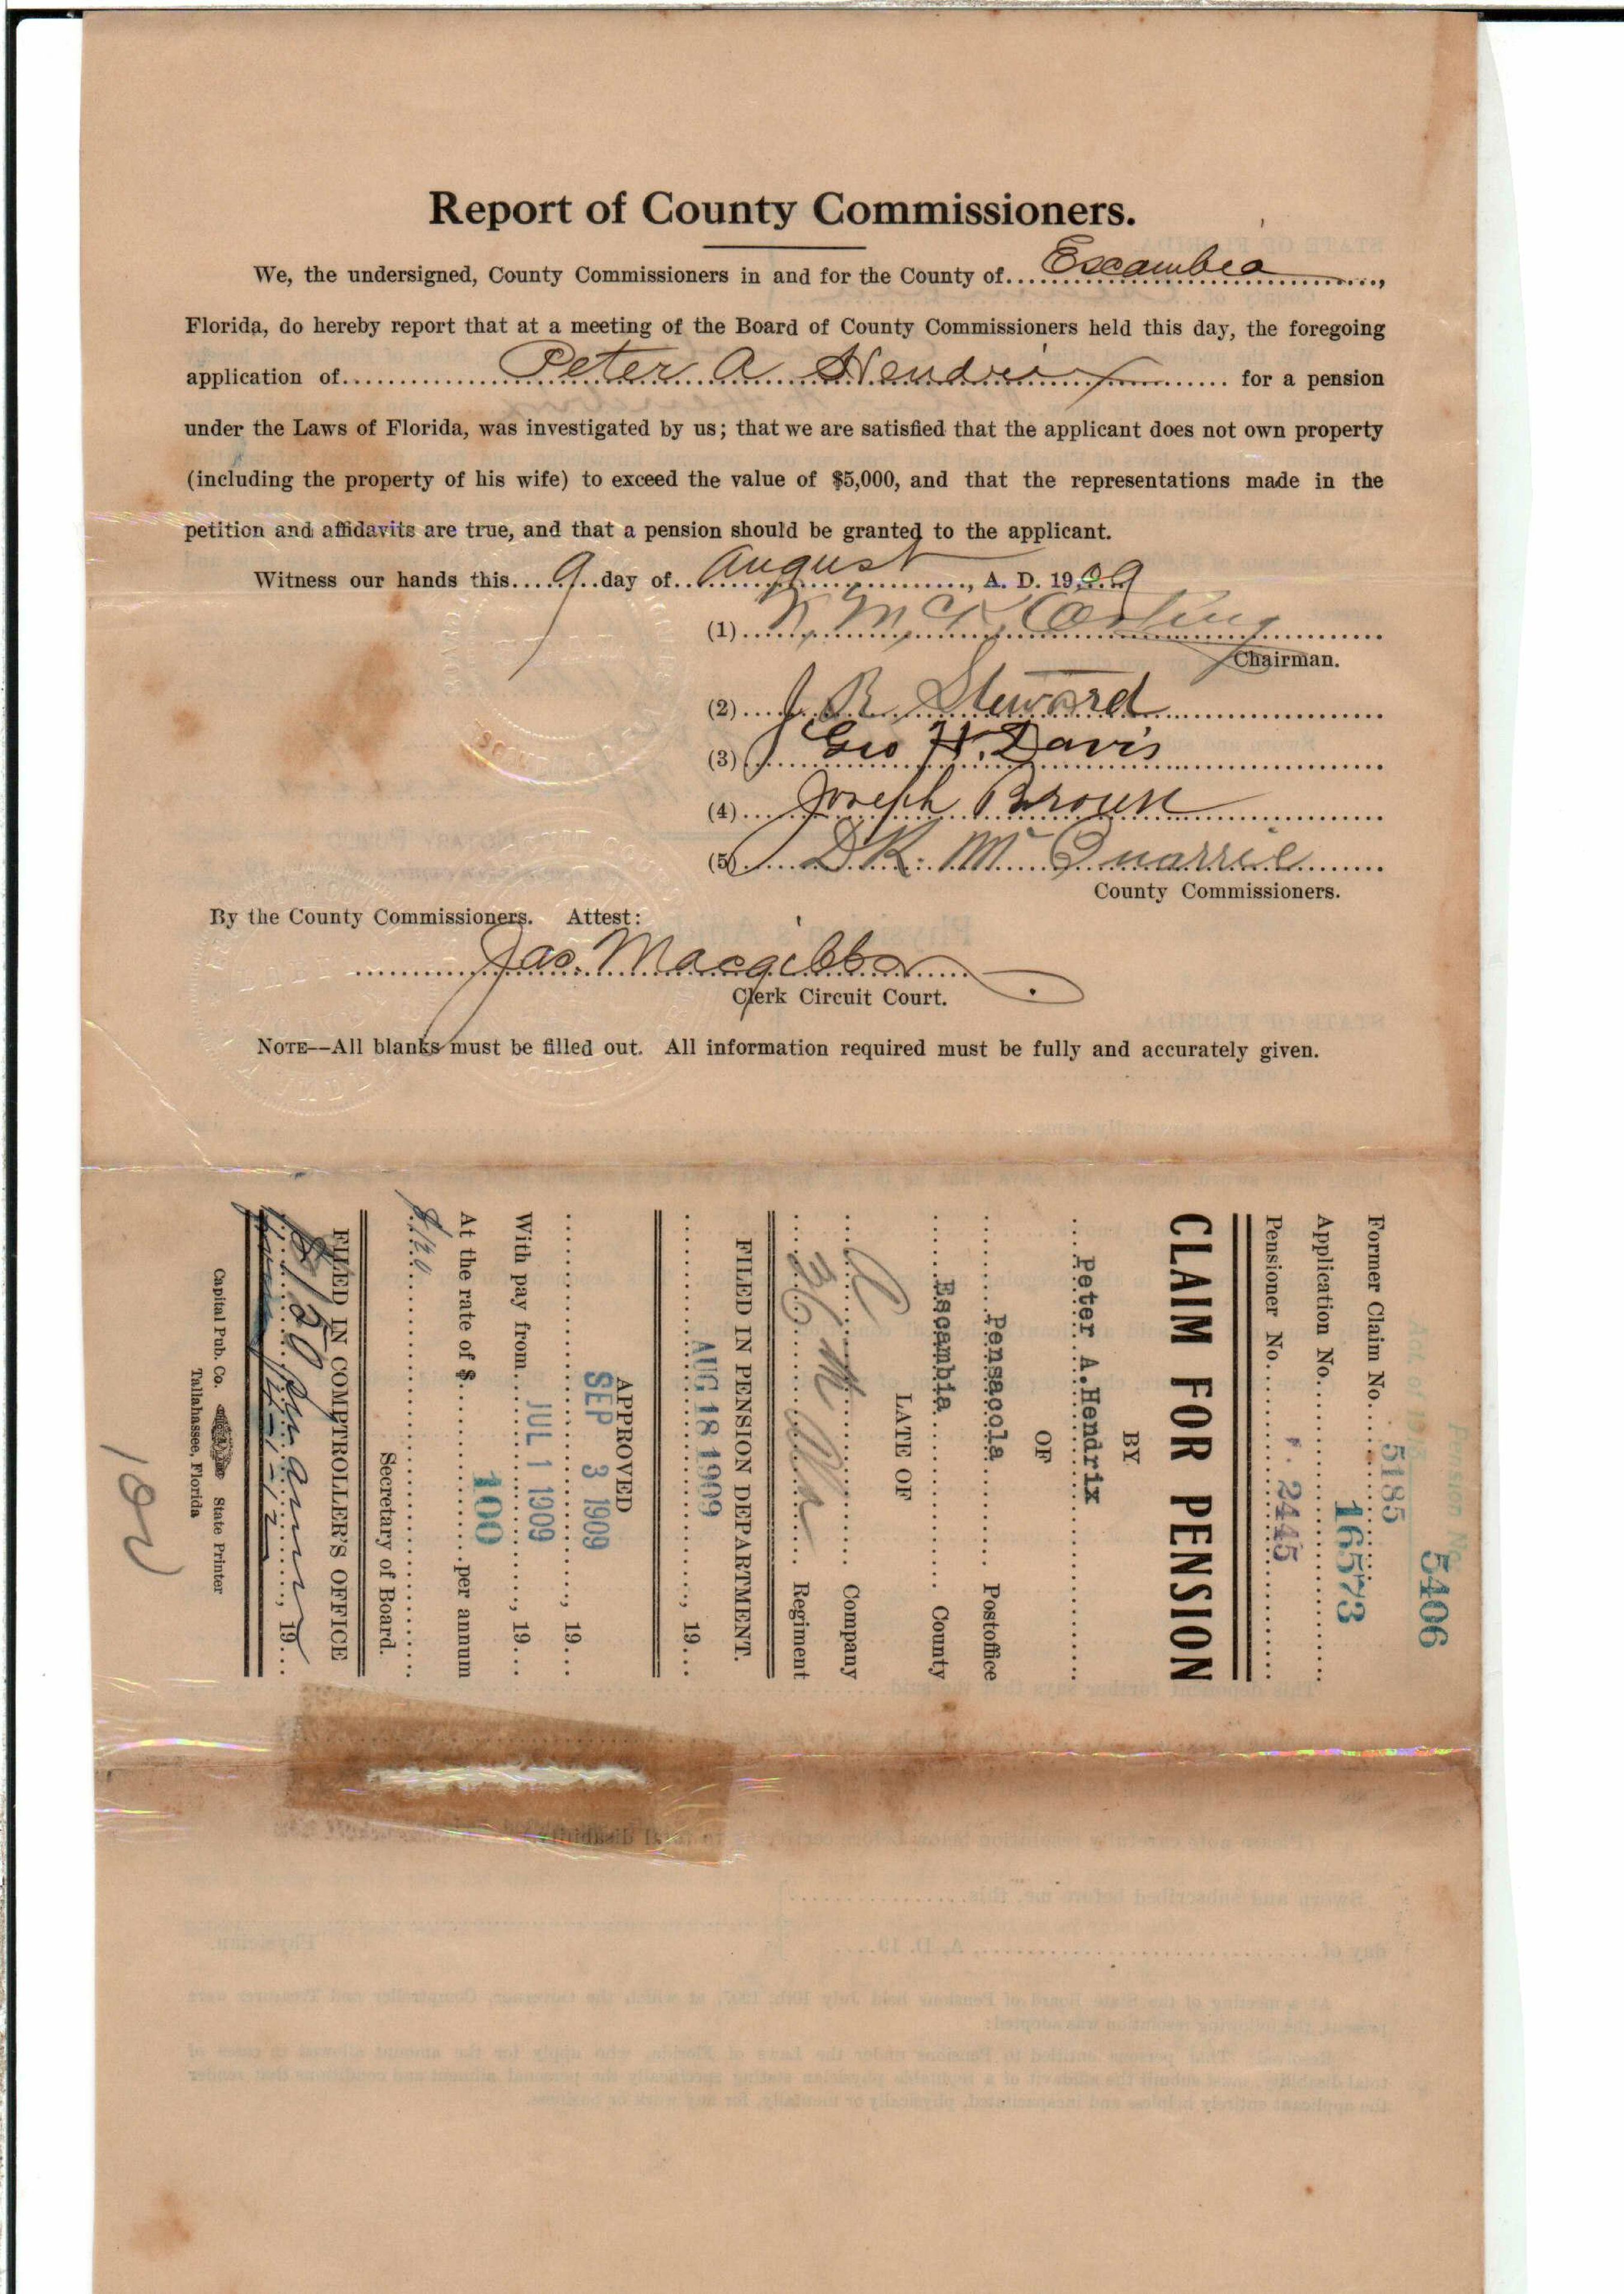 Report of County Commissioners.
We, the undersigned, County Commissioners in and for the County of Escambia,
Florida, do hereby report that at a meeting of the Board of County Commissioners held this day, the foregoing
application of Peter A Hendrix for a pension
under the Laws of Florida, was investigated by us; that we are satisfied that the applicant does not own property
(including the property of his wife) to exceed the value of $5,000, and that the representations made in the
petition and affidavits are true, and that a pension should be granted to the applicant.
Witness our hands this 9 day of August, A. D. 1909
(1)
Chairman.
(2) J. R. Steward
(3) Geo H. Davis
(4) Joseph Brown
(5) D K. McQuarrie
County Commissioners.
By the County Commissioners. Attest:
Jas. Macgibbon
Clerk Circuit Court.
NOTE--All blanks must be filled out. All information required must be fully and accurately given.
Act of 1913
Pension No.
5406
Former Claim No. 5185
Application No. 16573
Pensioner No. 2445
CLAIM FOR PENSION
BY
Peter A. Hendrix
OF
Pensacola Postoffice
Escambia County
LATE OF
C Company
36 Ala Regiment
FILED IN PENSION DEPARTMENT.
AUG 18 1909, 19
APPROVED
SEP 3 1909, 19
With pay from JUL 1 1909, 19
At the rate of $ 100 per annum
$120
Secretary of Board.
FILED IN COMPTROLLER'S OFFICE
, 19
Capital Pub. Co. State Printer
Tallahassee, Florida